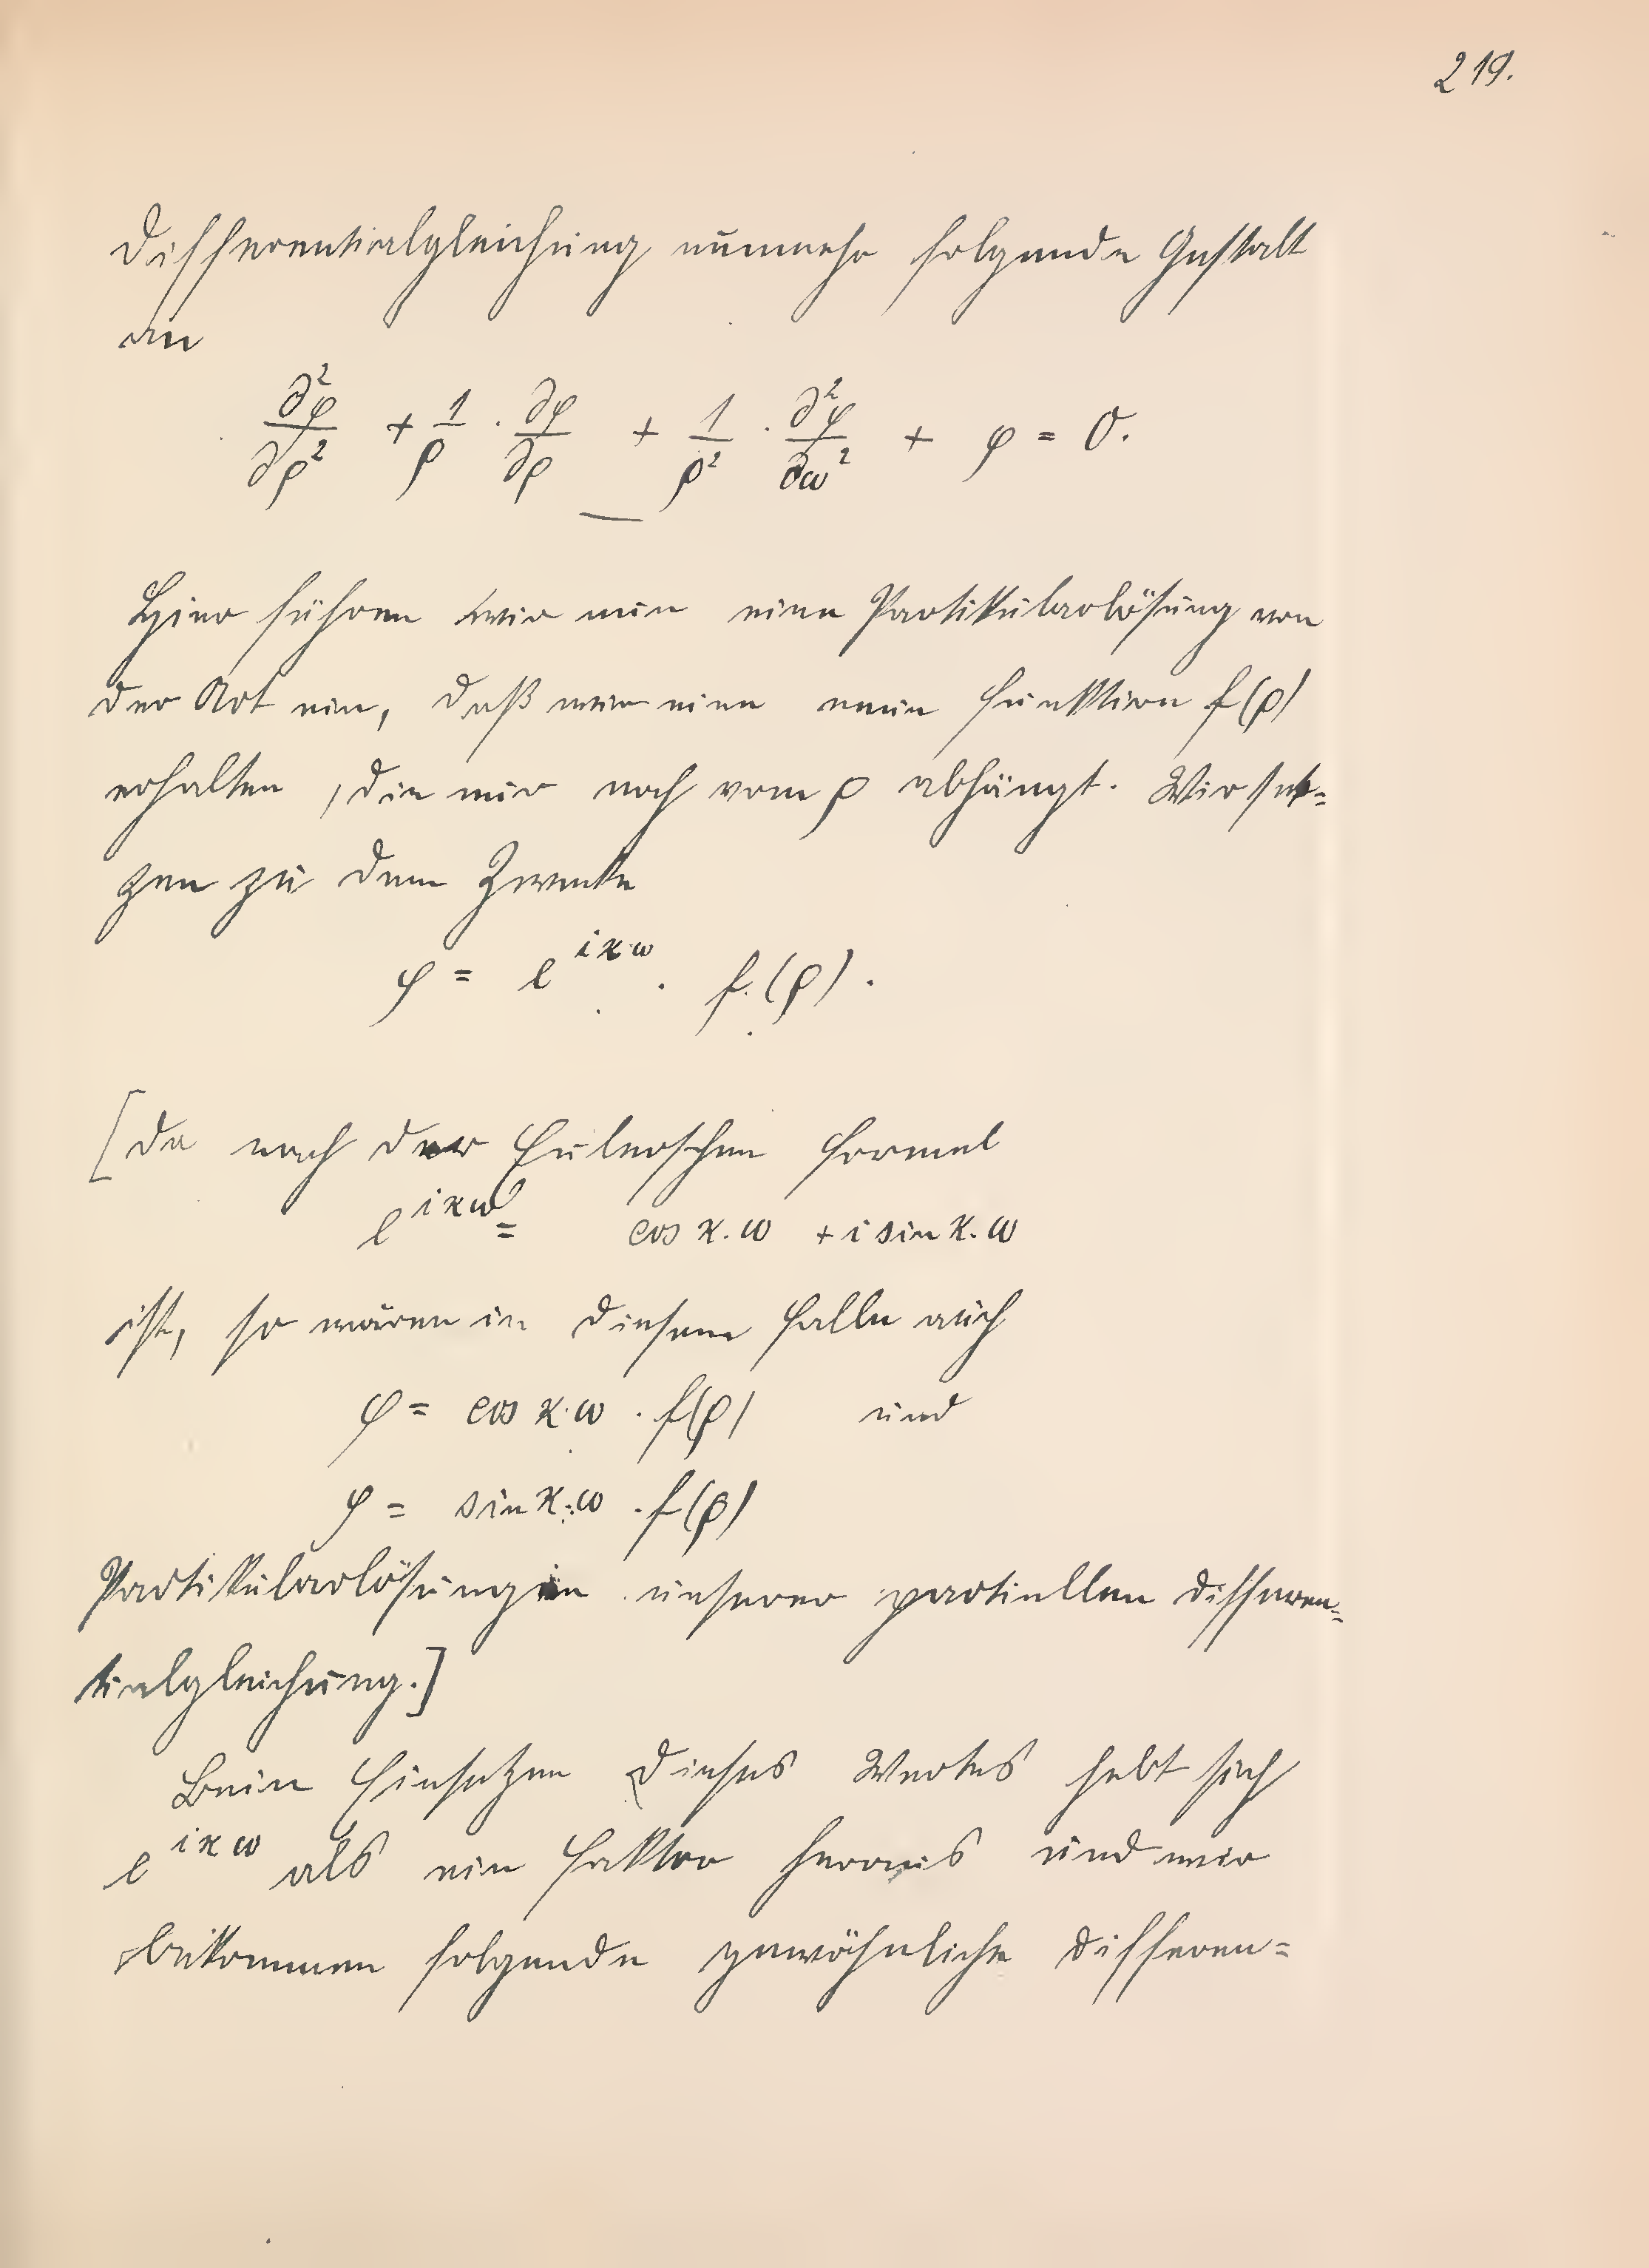 219.
Differentialgleichung nunmehr folgende Gestalt
an
∂²φ/∂ρ² + 1/ρ · ∂φ/∂ρ + 1/ρ² · ∂²φ/∂ω² + φ = 0.
Hier führen wir nun eine Partikularlösung von
der Art ein, daß wir eine neue Funktion f(ρ)
erhalten, die nur noch vom ρ abhängt. Wir set=
zen zu dem Zwecke
φ = e^{iϰω} · f(ρ).
[Da nach der Eulerschen Formel
e^{iϰω} = cos ϰ.ω + i sin ϰ.ω
ist, so wären in diesem Falle auch
φ = cos ϰ.ω · f(ρ) und
φ = sin ϰ.ω · f(ρ)
Partikularlösungen unserer partiellen Differen=
tialgleichung.]
Beim Einsetzen dieses Wertes hebt sich
e^{iϰω} als ein Faktor heraus und wir
bekommen folgende gewöhnliche Differen=